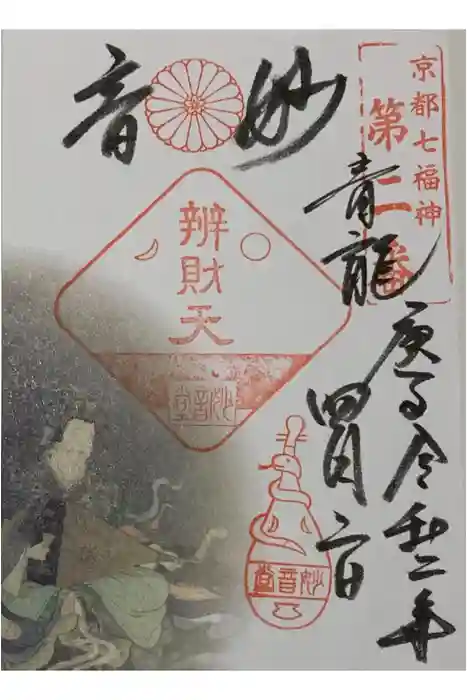 京都七福神
第二番
青龍
妙音
辨財天
妙音堂
妙音堂
庚子令和二年
四月